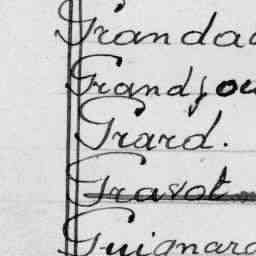 Grandac
Grandjou
Grard.
Gravot
Guignard